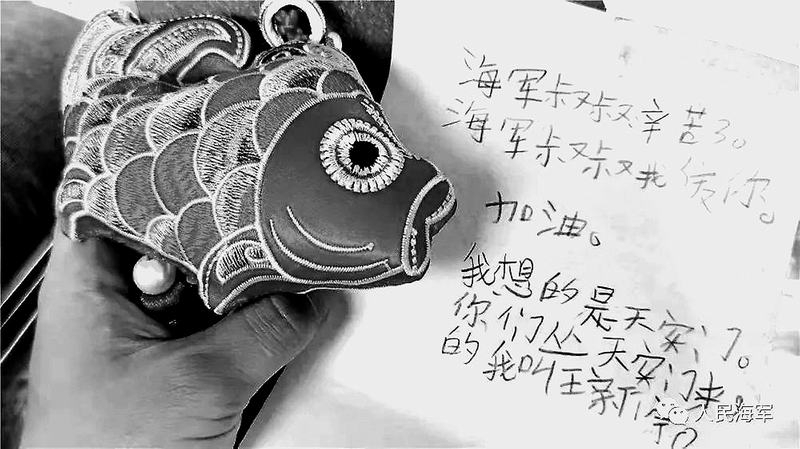 海军叔叔辛苦了。
海军叔叔我爱你。
加油。
我想的是天安门。
你们从天安门来。
的我叫王新
人民海军